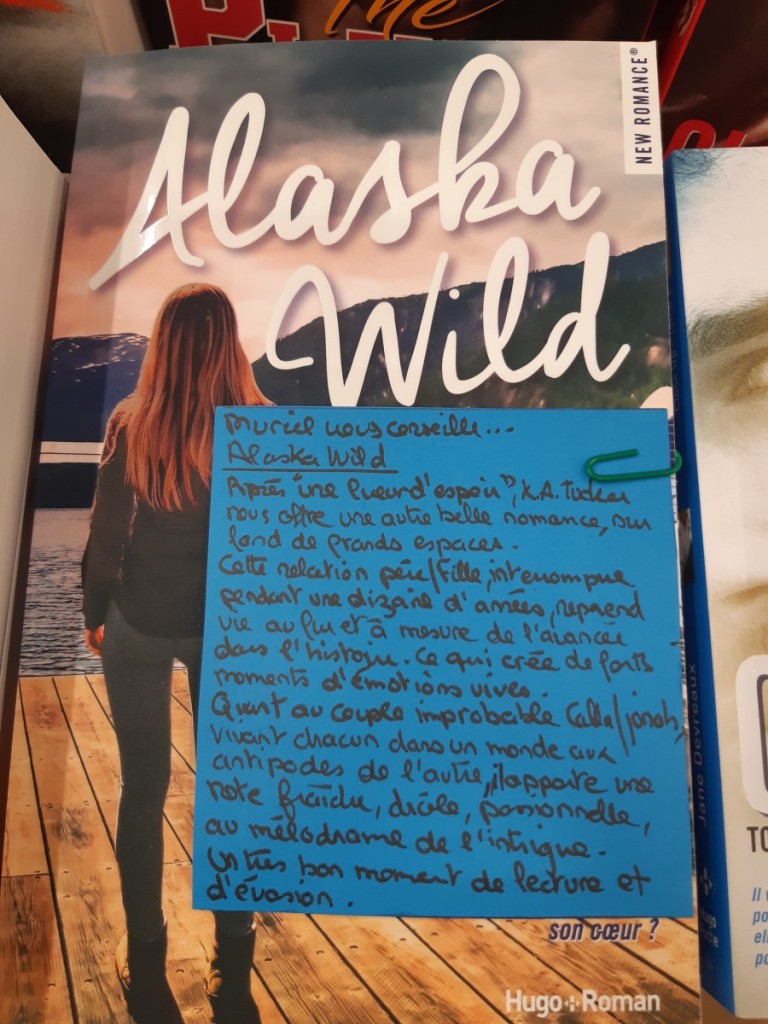 The
NEW ROMANCE®
Alaska
Wild
Muriel vous conseille...
Alaska Wild
Après "une lueur d'espoir", K.A. Tucker
nous offre une autre belle romance, sur
fond de grands espaces.
Cette relation père/fille, interrompue
pendant une dizaine d'années, reprend
vie au fur et à mesure de l'avancée
dans l'histoire. Ce qui crée de forts
moments d'émotions vives.
Quant au couple improbable Calla/jonah,
vivant chacun dans un monde aux
antipodes de l'autre, il apporte une
note fraîche, drôle, passionnelle,
au mélodrame de l'intrigue.
Un très bon moment de lecture et
d'évasion.
son cœur ?
Hugo+Roman
Jane Devreaux
Hugo
TO
Il v
po
ell
po